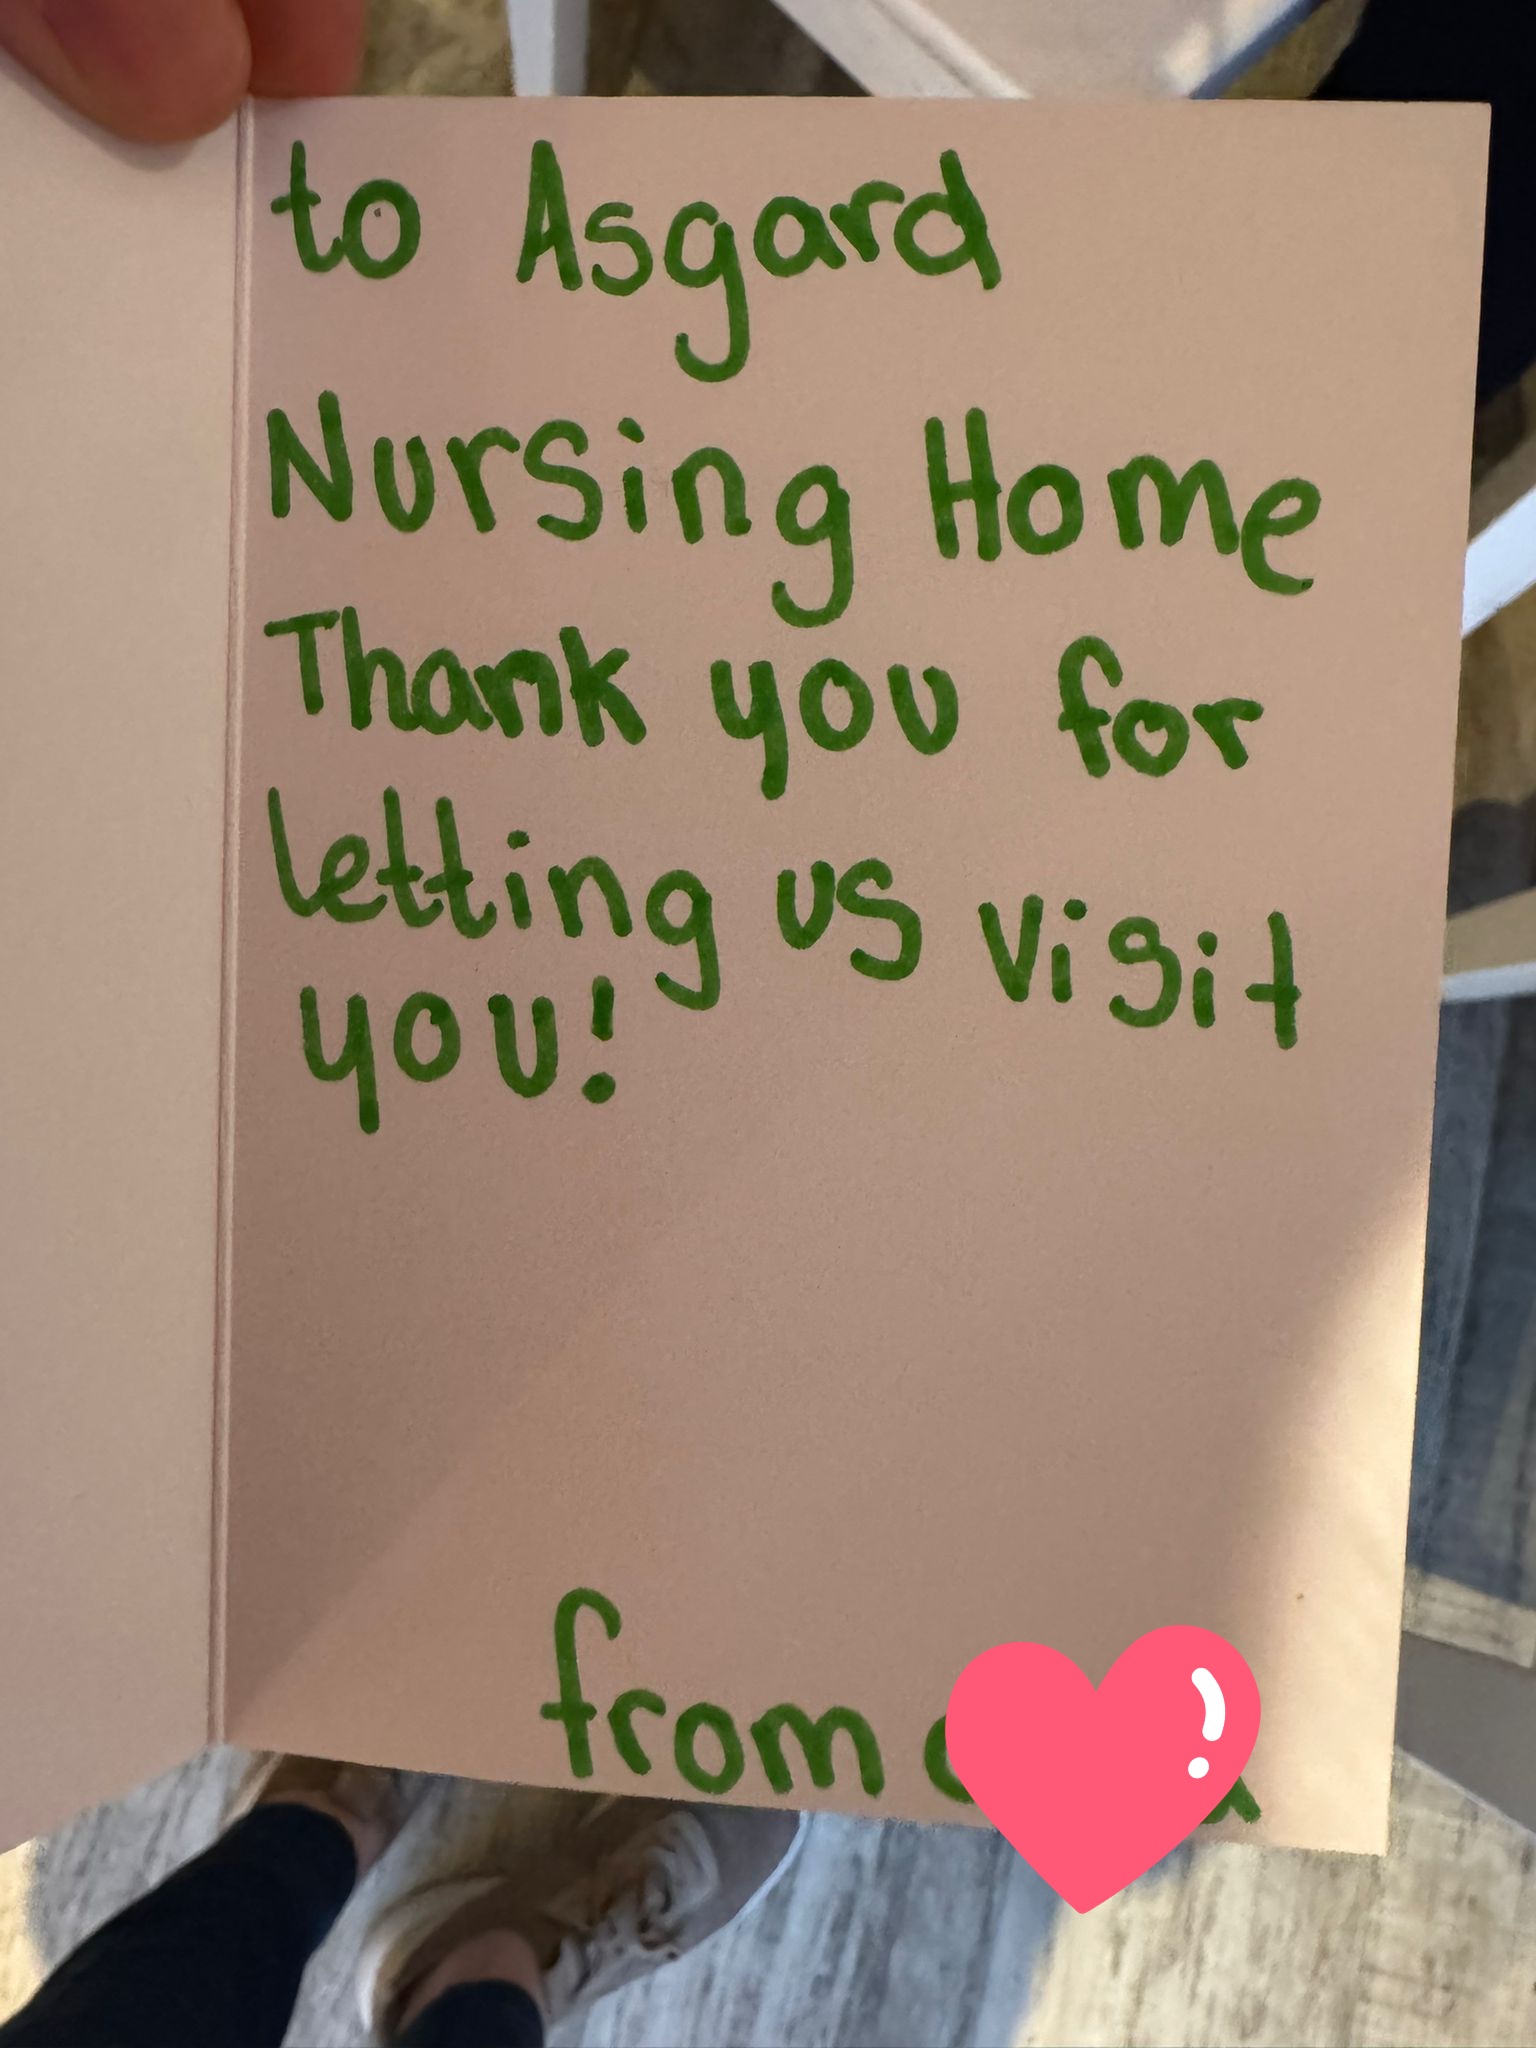 to Asgard
Nursing Home
Thank you for
letting us visit
you!
from